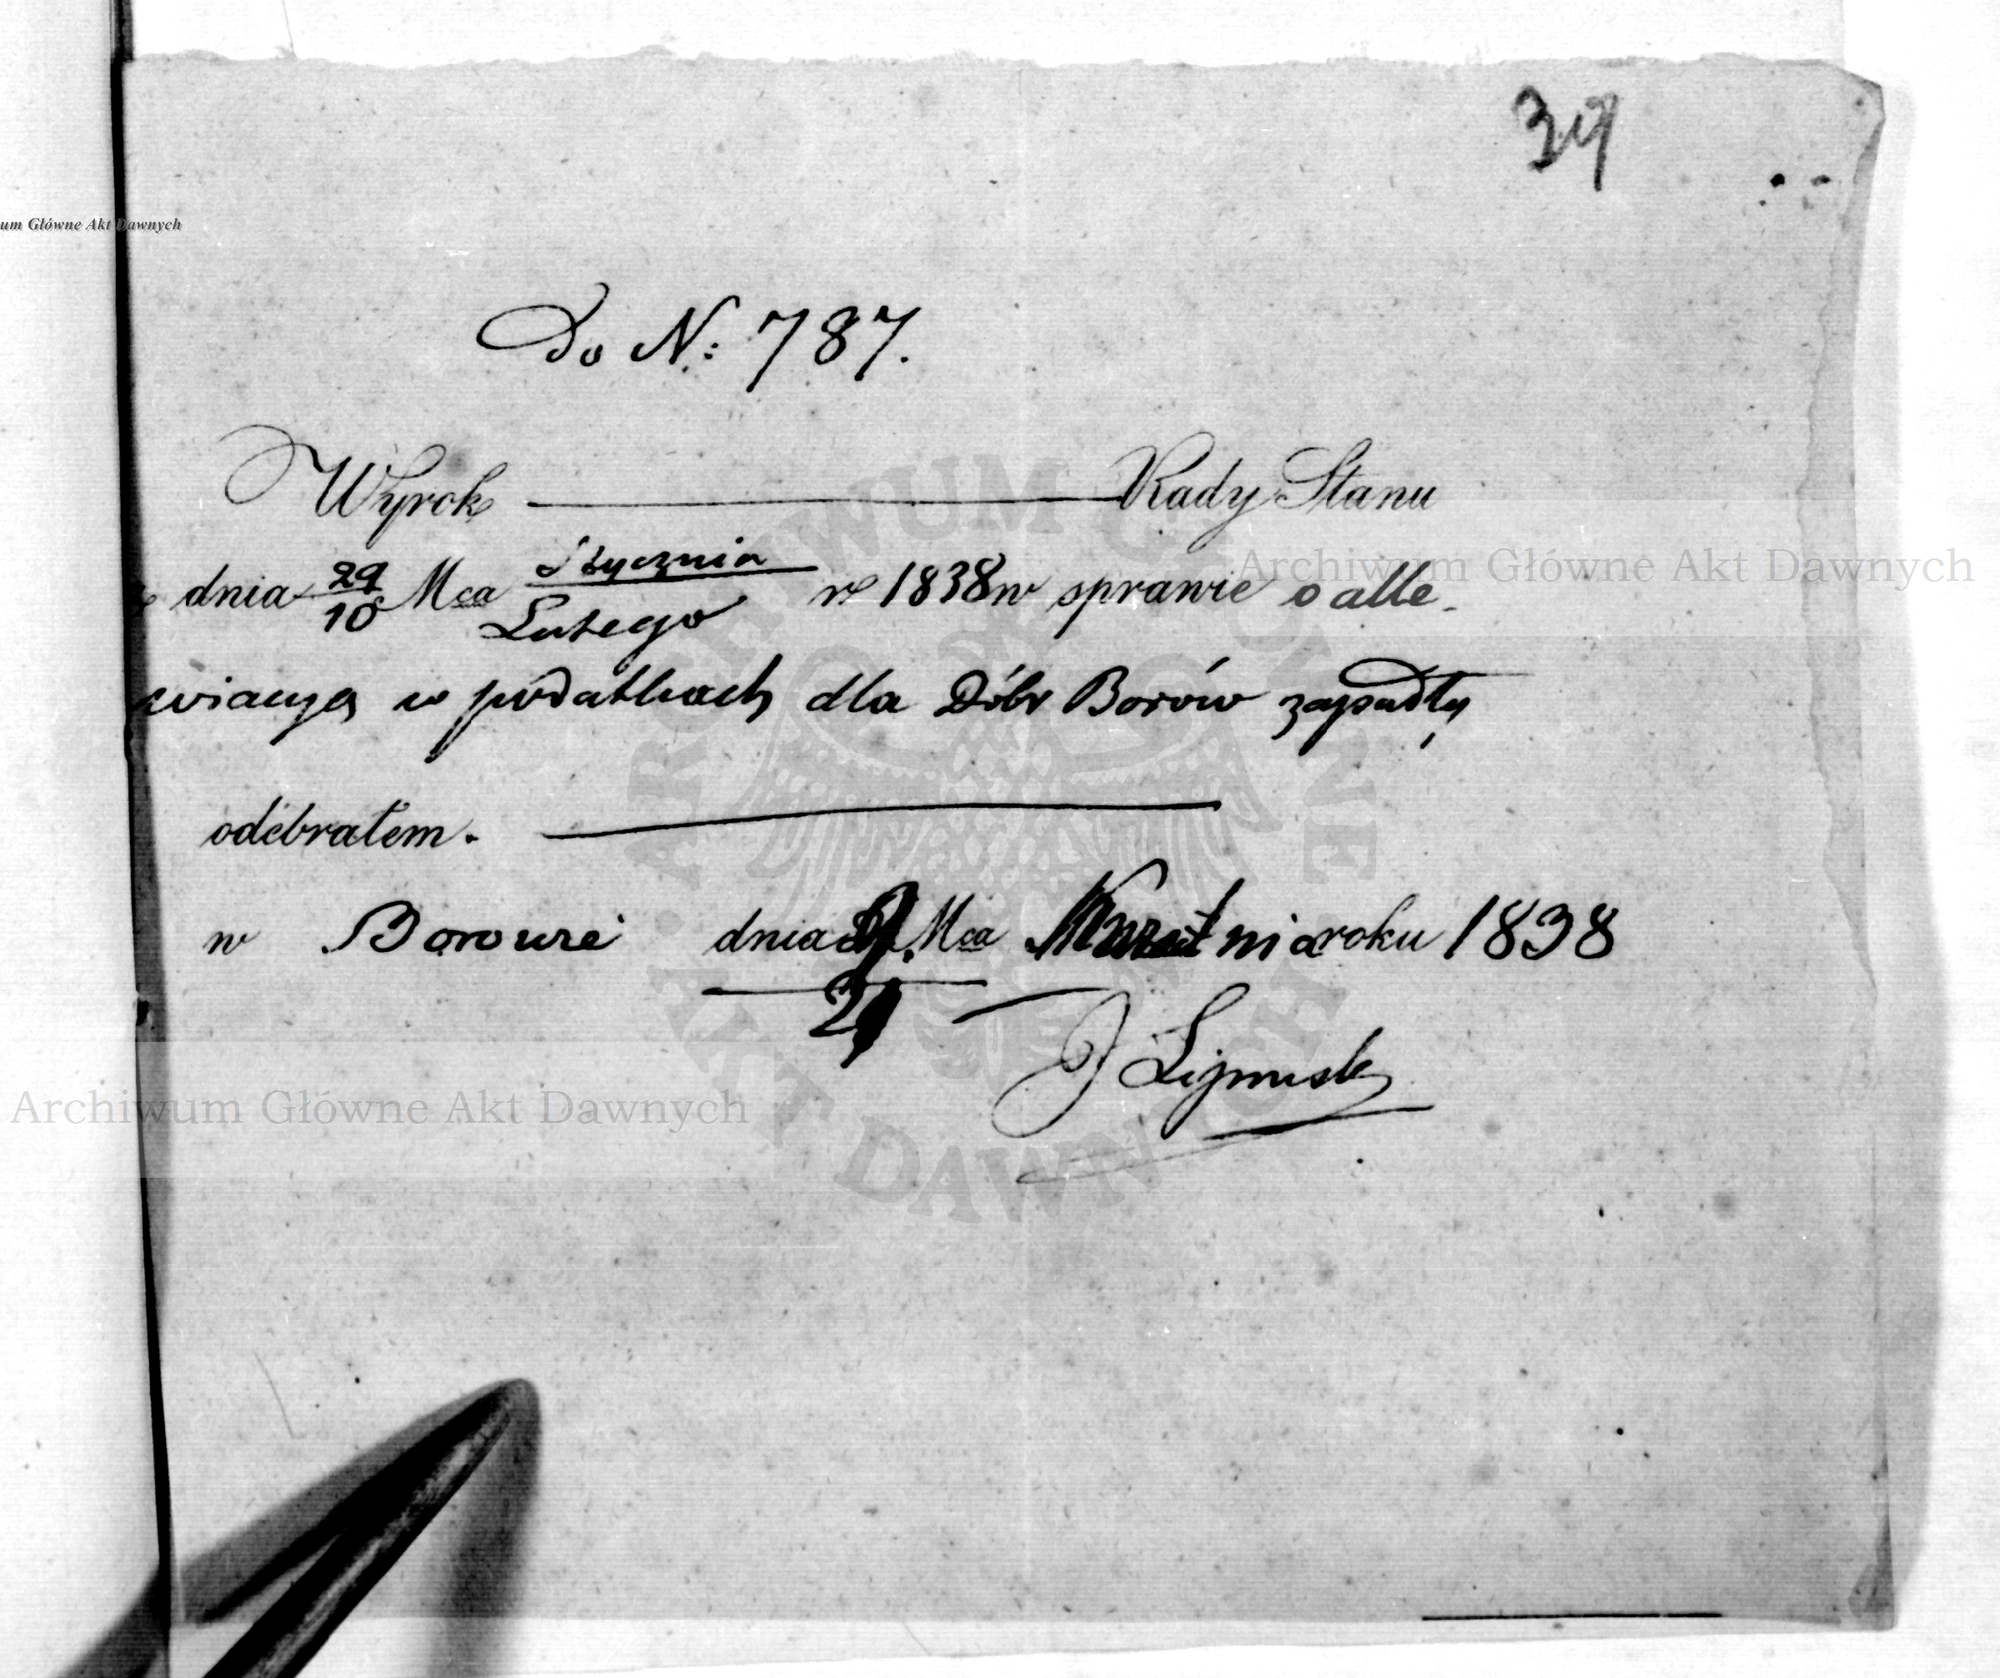 39
um Główne Akt Dawnych
Do N: 787.
Wyrok Rady Stanu
z dnia 29/10 Mca Stycznia/Lutego r 1838 w sprawie o alle-
wiacyą w podatkach dla Dóbr Borów zapadły
odebrałem.
w Borowie dnia 9. Mca Kwietnia roku 1838
21
J Lipinski
Archiwum Główne Akt Dawnych
Archiwum Główne Akt Dawnych
ARCHIWUM GŁÓWNE AKT DAWNYCH